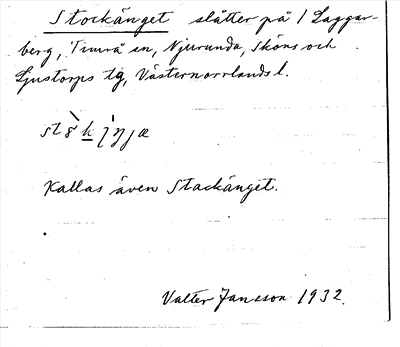 Stockänget slätter på 1 Laggar-
berg, Timrå sn, Njurunda, Sköns och
Ljustorps tg, Västernorrlands l.
Kallas även Stackänget.
Valter Jansson 1932.